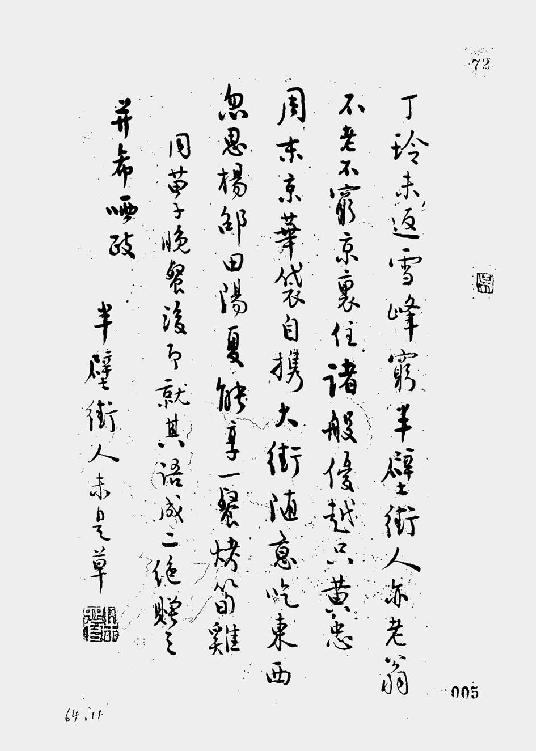 72
丁玲未返雪峰窮半壁街人亦老翁
不老不窮京裏住諸般優越只黃忠
周末京華袋自携大街随意吃東西
忽思楊邵田陽夏能享一餐烤筍雞
同苗子晚餐後即就其語成二絕贈之
并希哂政
半壁街人未是草
005
64.11